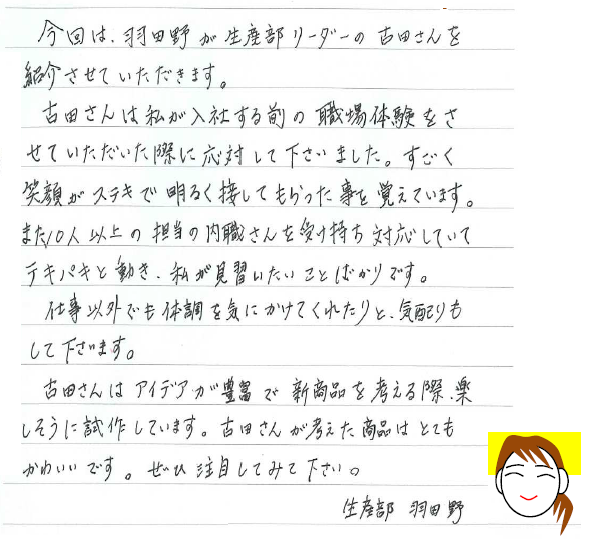 今回は、羽田野が生産部リーダーの古田さんを
紹介させていただきます。
古田さんは私が入社する前の職場体験をさ
せていただいた際に応対して下さいました。すごく
笑顔がステキで明るく接してもらった事を覚えています。
また10人以上の担当の内職さんを受け持ち対応していて
テキパキと動き、私が見習いたいことばかりです。
仕事以外でも体調を気にかけてくれたりと、気配りも
して下さいます。
古田さんはアイデアが豊富で新商品を考える際、楽
しそうに試作しています。古田さんが考えた商品はとても
かわいいです。ぜひ注目してみて下さい。
生産部 羽田野